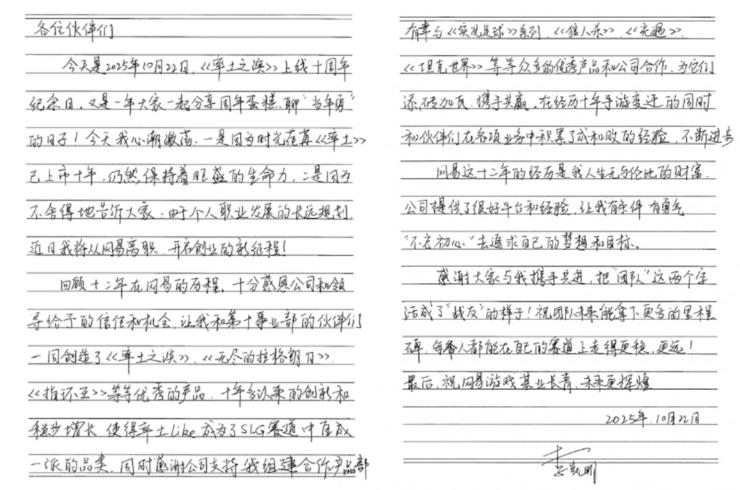 各位伙伴们
今天是2025年10月22日，《率土之滨》上线十周年
纪念日，又是一年大家一起分享周年蛋糕，聊“当年勇”
的日子！今天我心潮激荡，一是因为时光荏苒《率土》
已上市十年，仍然保持着旺盛的生命力，二是因为
不舍得地告诉大家，由于个人职业发展的长远规划，
近日我将从网易离职，开启创业的新征程！
回顾十二年在网易的历程，十分感恩公司和领
导给予的信任和机会，让我和第十事业部的伙伴们
一同创造了《率土之滨》、《无尽的拉格朗日》、
《指环王》等等优秀的产品，十年多以来的创新和
稳步增长，使得率土Like成为了SLG赛道中自成
一派的品类，同时感谢公司支持我组建合作产品部
有幸与《实况足球》系列、《狼人杀》、
《坦克世界》等等众多的优秀产品和公司合作，为它们
添砖加瓦，携手共赢，在经历十年手游变迁的同时
和伙伴们在各项业务中积累了成和败的经验，不断进步
网易这十二年的经历是我人生无与伦比的财富，
公司提供了很好平台和经验，让我有条件有勇气
“不忘初心”去追求自己的梦想和目标。
感谢大家与我携手共进，把“团队”这两个字
活成了“战友”的样子！祝团队未来能拿下更多的里程
碑，每个人都能在自己的赛道上走得更稳，更远！
最后，祝网易游戏基业长青，未来更辉煌
2025年10月22日
李凯明